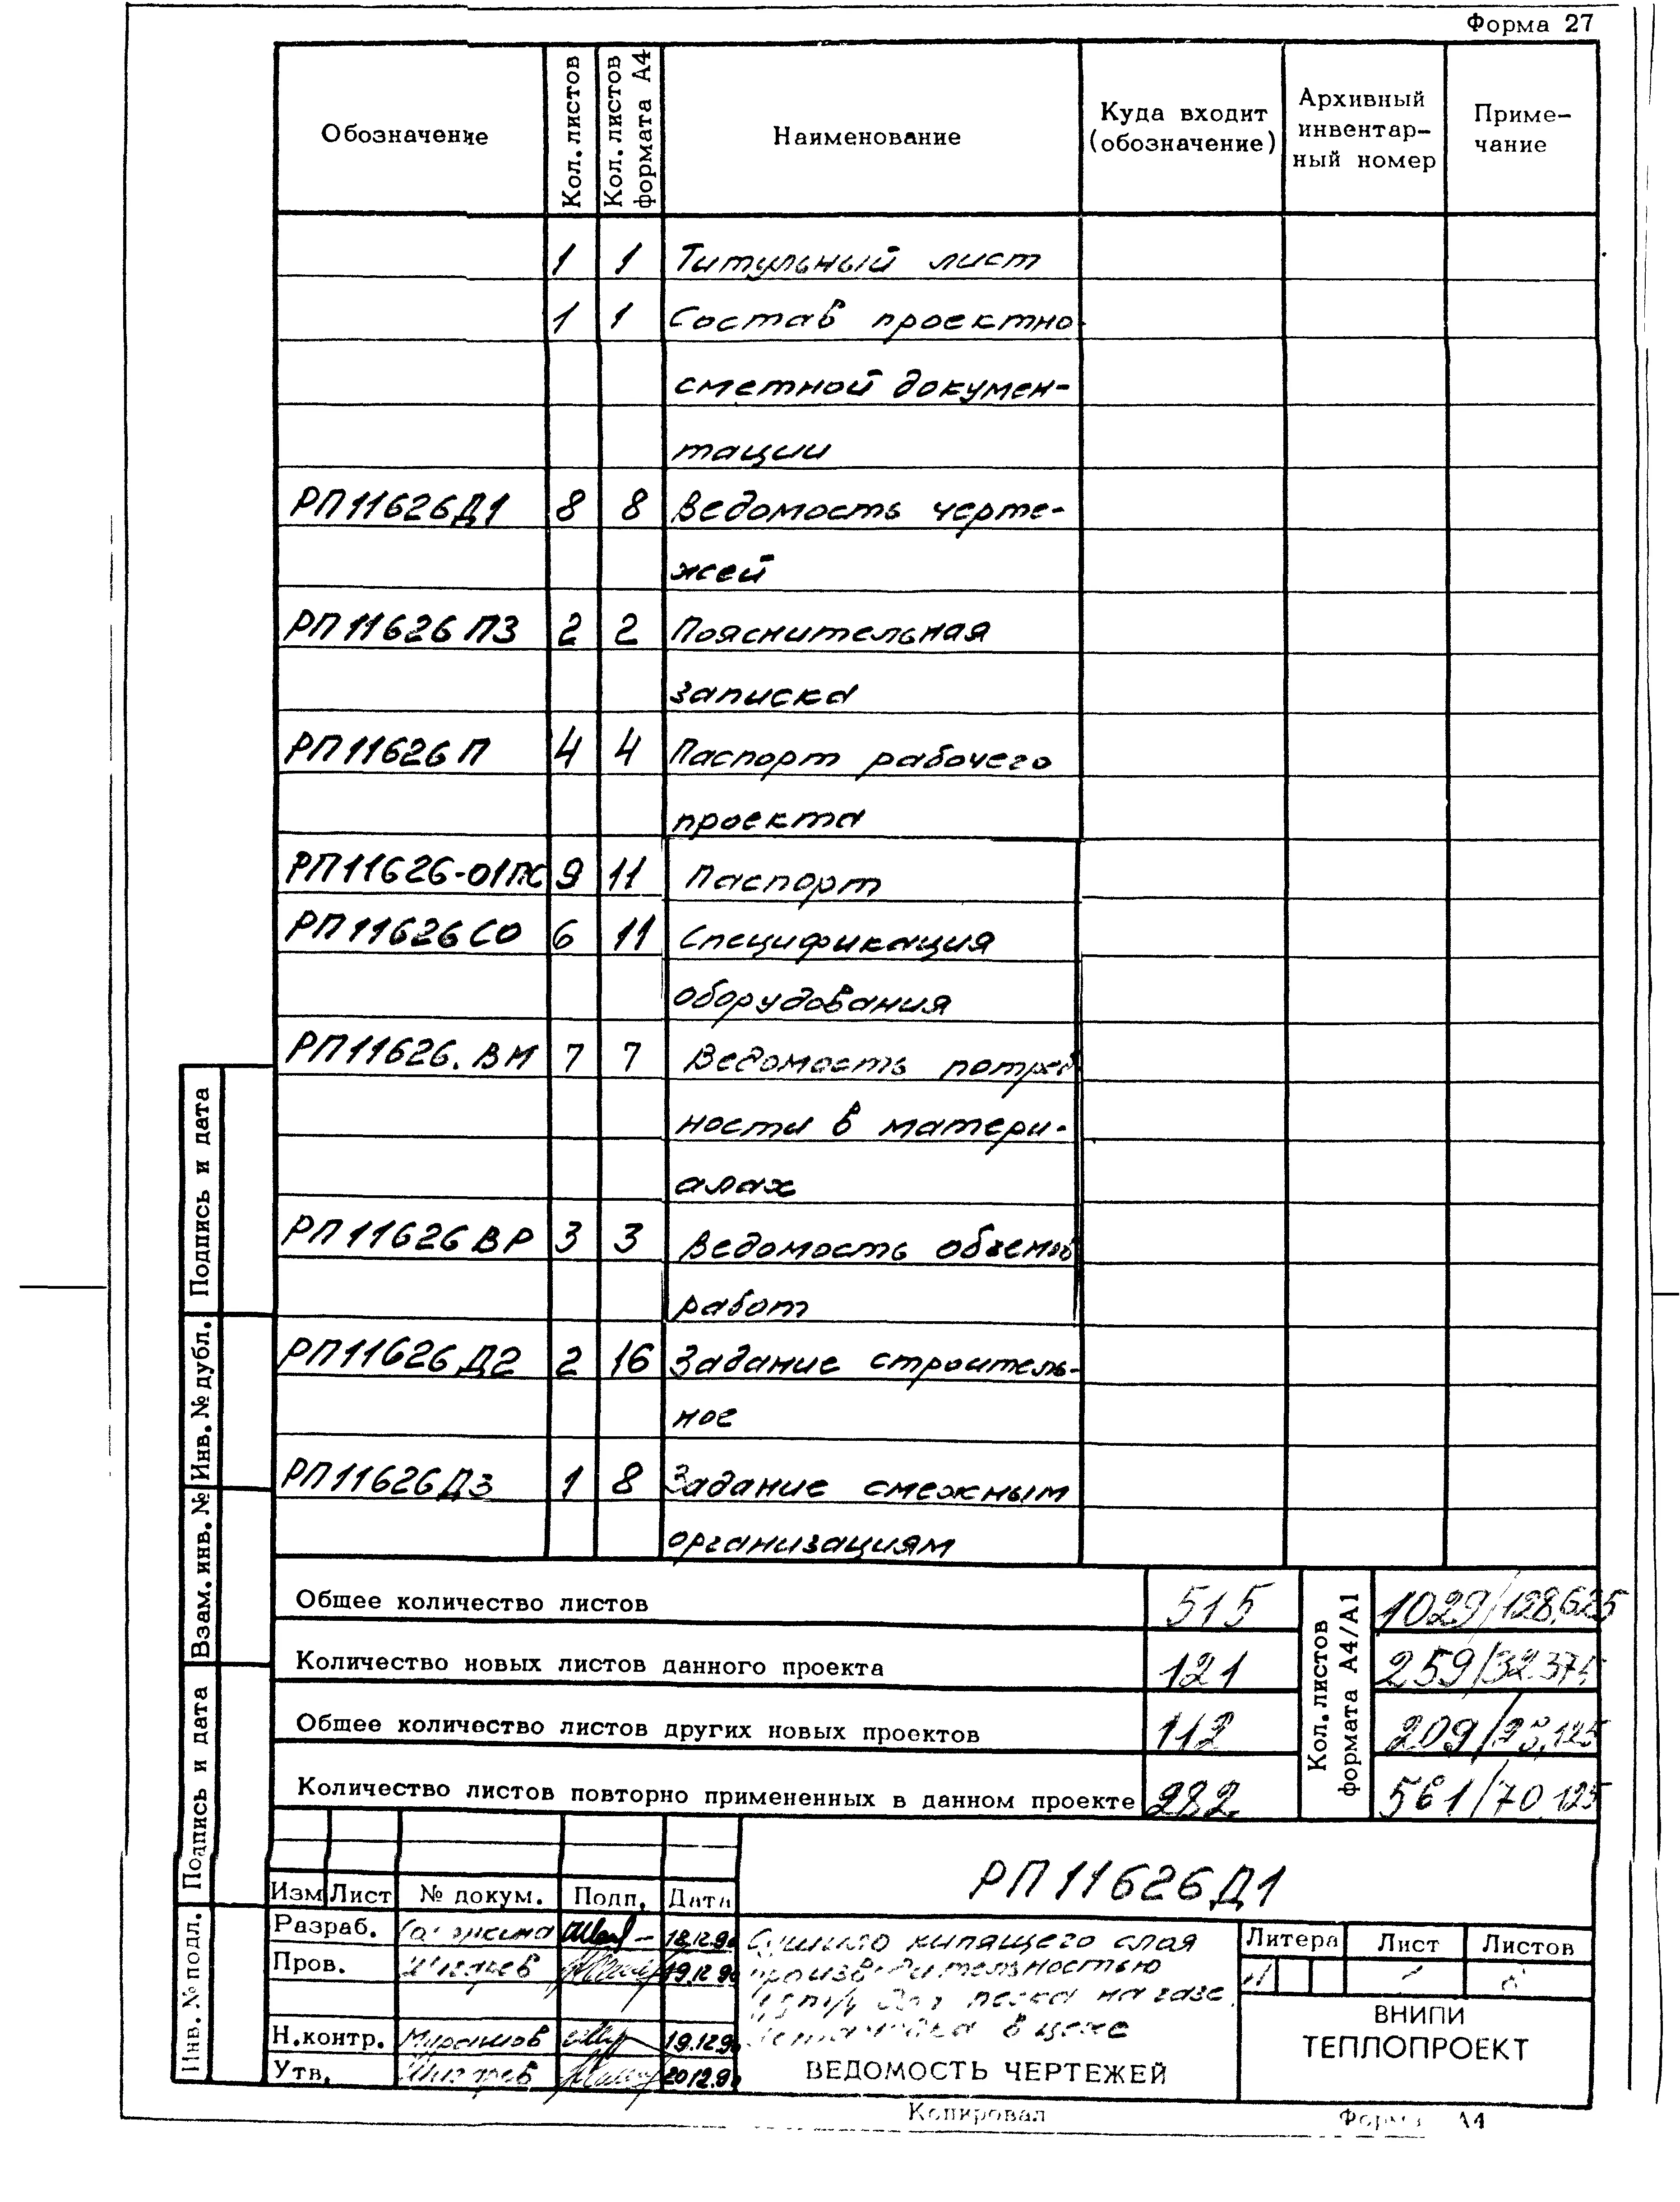 Форма 27
Обозначение
Кол. листов
Кол. листов формата А4
Наименование
Куда входит (обозначение)
Архивный инвентар-ный номер
Приме-чание
1 1 Титульный лист
1 1 Состав проектно-
сметной докумен-
тации
РП11626Д1 8 8 Ведомость черте-
жей
РП11626ПЗ 2 2 Пояснительная
записка
РП11626П 4 4 Паспорт рабочего
проекта
РП11626-01ПС 9 11 Паспорт
РП11626СО 6 11 Спецификация
оборудования
РП11626.ВМ 7 7 Ведомость потреб
ности в матери-
алах
РП11626ВР 3 3 Ведомость объемов
работ
РП11626Д2 2 16 Задание строитель-
ное
РП11626Д3 1 8 Задание смежным
организациям
Подпись и дата
Инв. № дубл.
Взам. инв. №
Подпись и дата
Инв. № подл.
Кол. листов формата А4/А1
Общее количество листов 515 1029/128,625
Количество новых листов данного проекта 121 259/32.375
Общее количество листов других новых проектов 112 209/
Количество листов повторно примененных в данном проекте 282 561/70.125
РП11626Д1
Изм Лист № докум. Подп. Дата
Разраб. 18.12.90
Пров. 19.12.90
Н.контр. 19.12.90
Утв. 20.12.90
Сушило кипящего слоя
производительностью
песка на газе.
Установка в цехе
ВЕДОМОСТЬ ЧЕРТЕЖЕЙ
Литера Лист Листов
ВНИПИ
ТЕПЛОПРОЕКТ
Копировал
Форма А4